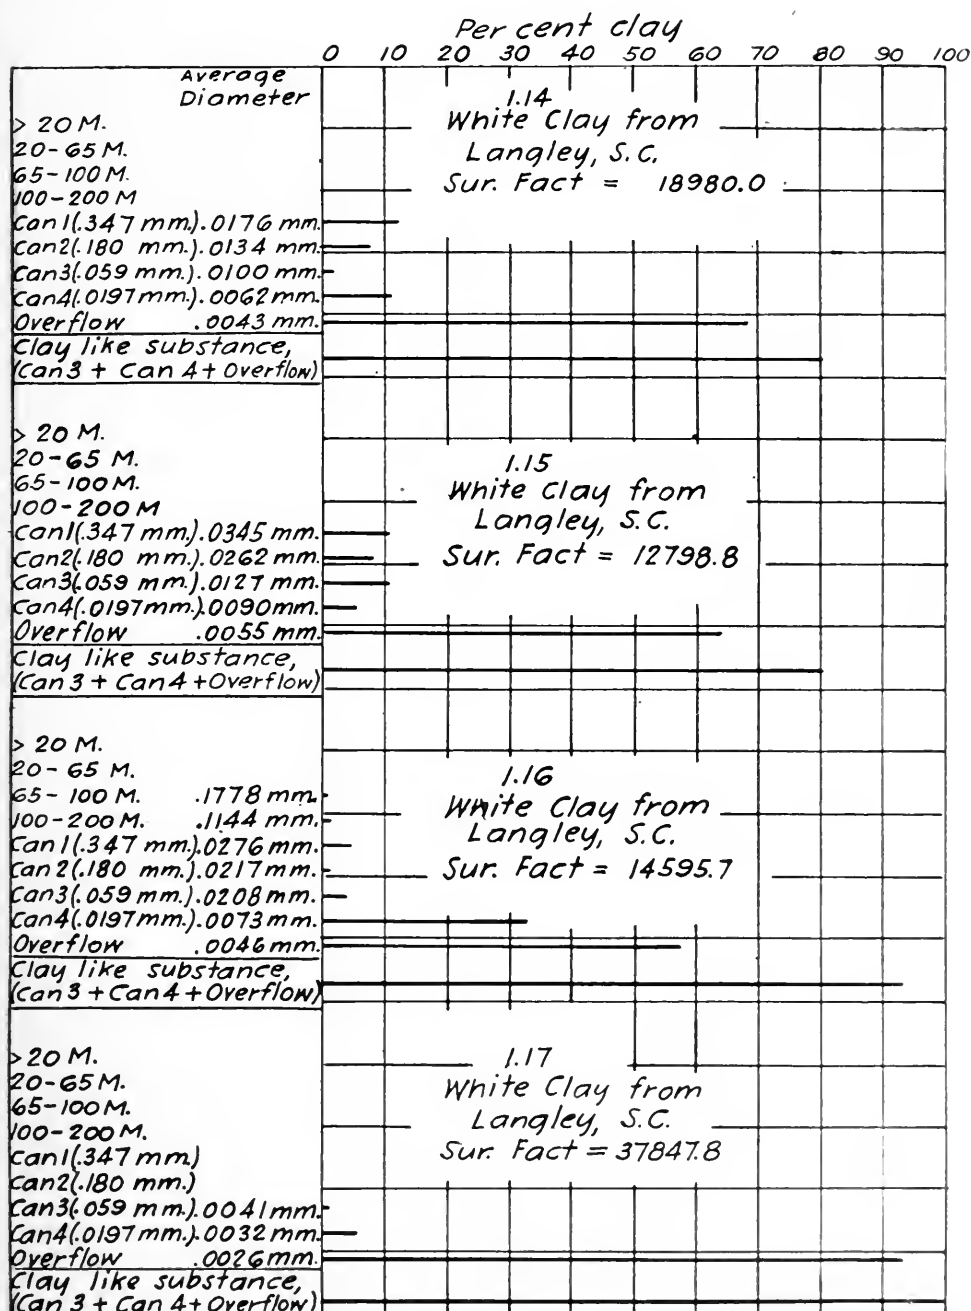 Per cent clay
0 10 20 30 40 50 60 70 80 90 100
Average
Diameter
> 20 M.
20-65 M.
65-100 M.
100-200 M
Can 1(.347 mm.).0176 mm.
Can2(.180 mm.).0134 mm.
Can3(.059 mm.).0100 mm.
Can4(.0197mm.).0062mm.
Overflow .0043 mm.
Clay like substance,
(Can 3 + Can 4 + Overflow)
1.14
White Clay from
Langley, S.C.
Sur. Fact = 18980.0
> 20 M.
20-65 M.
65-100M.
100-200 M
Can1(.347 mm.).0345 mm.
Can2(.180 mm.).0262 mm.
Can3(.059 mm.).0127 mm.
Can4(.0197mm.).0090mm.
Overflow .0055 mm.
Clay like substance,
(Can 3 + Can 4 + Overflow)
1.15
White Clay from
Langley, S.C.
Sur. Fact = 12798.8
> 20 M.
20-65 M.
65-100 M. .1778 mm.
100-200 M. .1144 mm.
Can 1(.347 mm.).0276mm.
Can 2(.180 mm.).0217mm.
Can3(.059 mm.).0208mm.
Can4(.0197mm.).0073mm.
Overflow .0046mm.
Clay like substance,
(Can 3 + Can 4 + Overflow)
1.16
White Clay from
Langley, S.C.
Sur. Fact = 14595.7
> 20 M.
20-65M.
65-100M.
100-200 M.
Can1(.347 mm)
Can2(.180 mm.)
Can3(.059 mm.).0041mm.
Can4(.0197mm.).0032mm.
Overflow .0026mm.
Clay like substance,
(Can 3 + Can 4 + Overflow)
1.17
White Clay from
Langley, S.C.
Sur. Fact = 37847.8